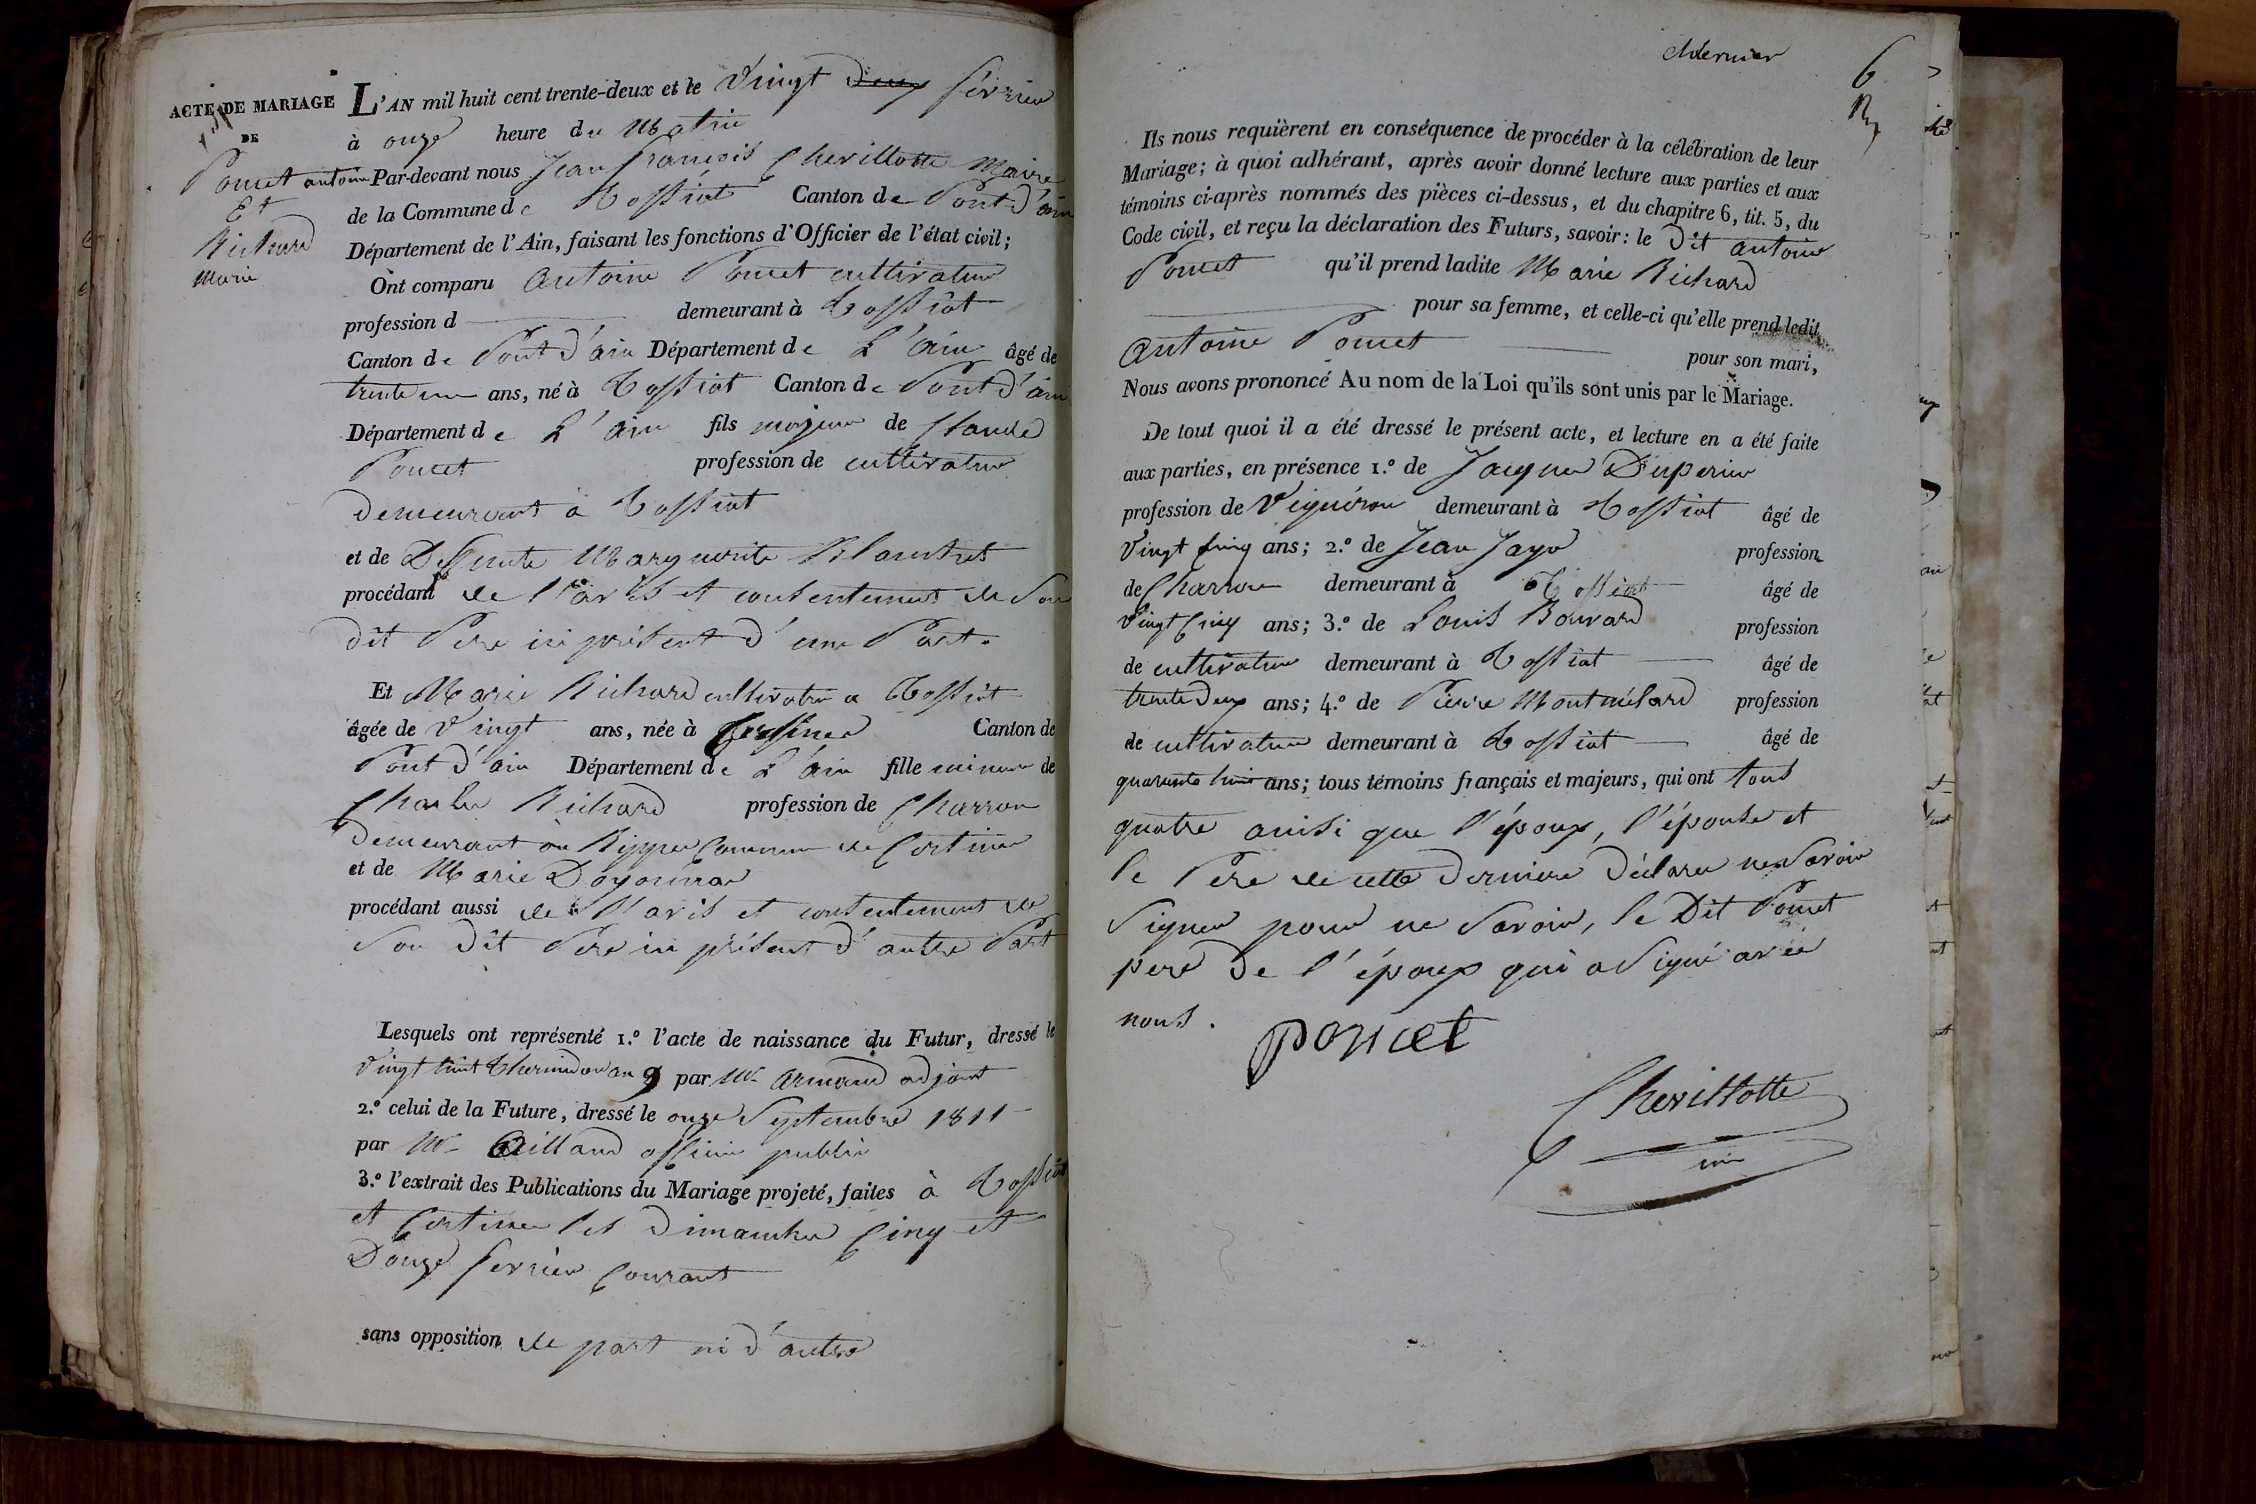 ACTE DE MARIAGE
DE
Poncet antoine
Et
Richard
Marie
L'AN mil huit cent trente-deux et le Vingt deux février
à onze heure du Matin
Par-devant nous Jean françois Chevillotte Maire
de la Commune de Tossiat Canton de Pont d'ain
Département de l'Ain, faisant les fonctions d'Officier de l'état civil;
Ont comparu Antoine Poncet cultivateur
profession d demeurant à Tossiat
Canton de Pont d'ain Département de L'ain âgé de
trente un ans, né à Tossiat Canton de Pont d'ain
Département de L'ain fils majeur de Claude
Poncet profession de cultivateur
demeurant à Tossiat
et de Defunte Marguerite
procédant de l'avis et consentement de Son
dit Pere ici présent d'une Part.
Et Marie Richard cultivatr a Tossiat
âgée de Vingt ans, née à Canton de
Pont d'ain Département de L'ain fille mineure de
Charles Richard profession de Charron
demeurant au Commune de Certines
et de Marie
procédant aussi de l'avis et consentement de
Son dit Père ici présent d'autre Part
Lesquels ont représenté 1.º l'acte de naissance du Futur, dressé le
Vingt huit thermidor an 9 par Mr. Armand adjoint
2.º celui de la Future, dressé le onze Septembre 1811
par Mr officier public
3.º l'extrait des Publications du Mariage projeté, faites à Tossiat
et Certines les dimanches Cinq et
Douze fevrier Courant
sans opposition de part ni d'autre
6
Ils nous requièrent en conséquence de procéder à la célébration de leur
Mariage; à quoi adhérant, après avoir donné lecture aux parties et aux
témoins ci-après nommés des pièces ci-dessus, et du chapitre 6, tit. 5, du
Code civil, et reçu la déclaration des Futurs, savoir: le dit antoine
Poncet qu'il prend ladite Marie Richard
pour sa femme, et celle-ci qu'elle prend ledit
Antoine Poncet pour son mari,
Nous avons prononcé Au nom de la Loi qu'ils sont unis par le Mariage.
De tout quoi il a été dressé le présent acte, et lecture en a été faite
aux parties, en présence 1.º de Jacques Duperier
profession de Vigneron demeurant à Tossiat âgé de
Vingt Cinq ans; 2.º de Jean Jayr profession
de Charron demeurant à Tossiat âgé de
Vingt Cinq ans; 3.º de Louis Bouvard profession
de cultivateur demeurant à Tossiat âgé de
trente deux ans; 4.º de Pierre Montmélard profession
de cultivateur demeurant à Tossiat âgé de
quarante huit ans; tous témoins français et majeurs, qui ont tous
quatre ainsi que l'époux, l'épouse et
le Pere de cette derniere déclaré ne Savoir
Signer pour ne Savoir, le Dit Poncet
pere de l'époux qui a Signé avec
nous.
poncet
Chevillotte